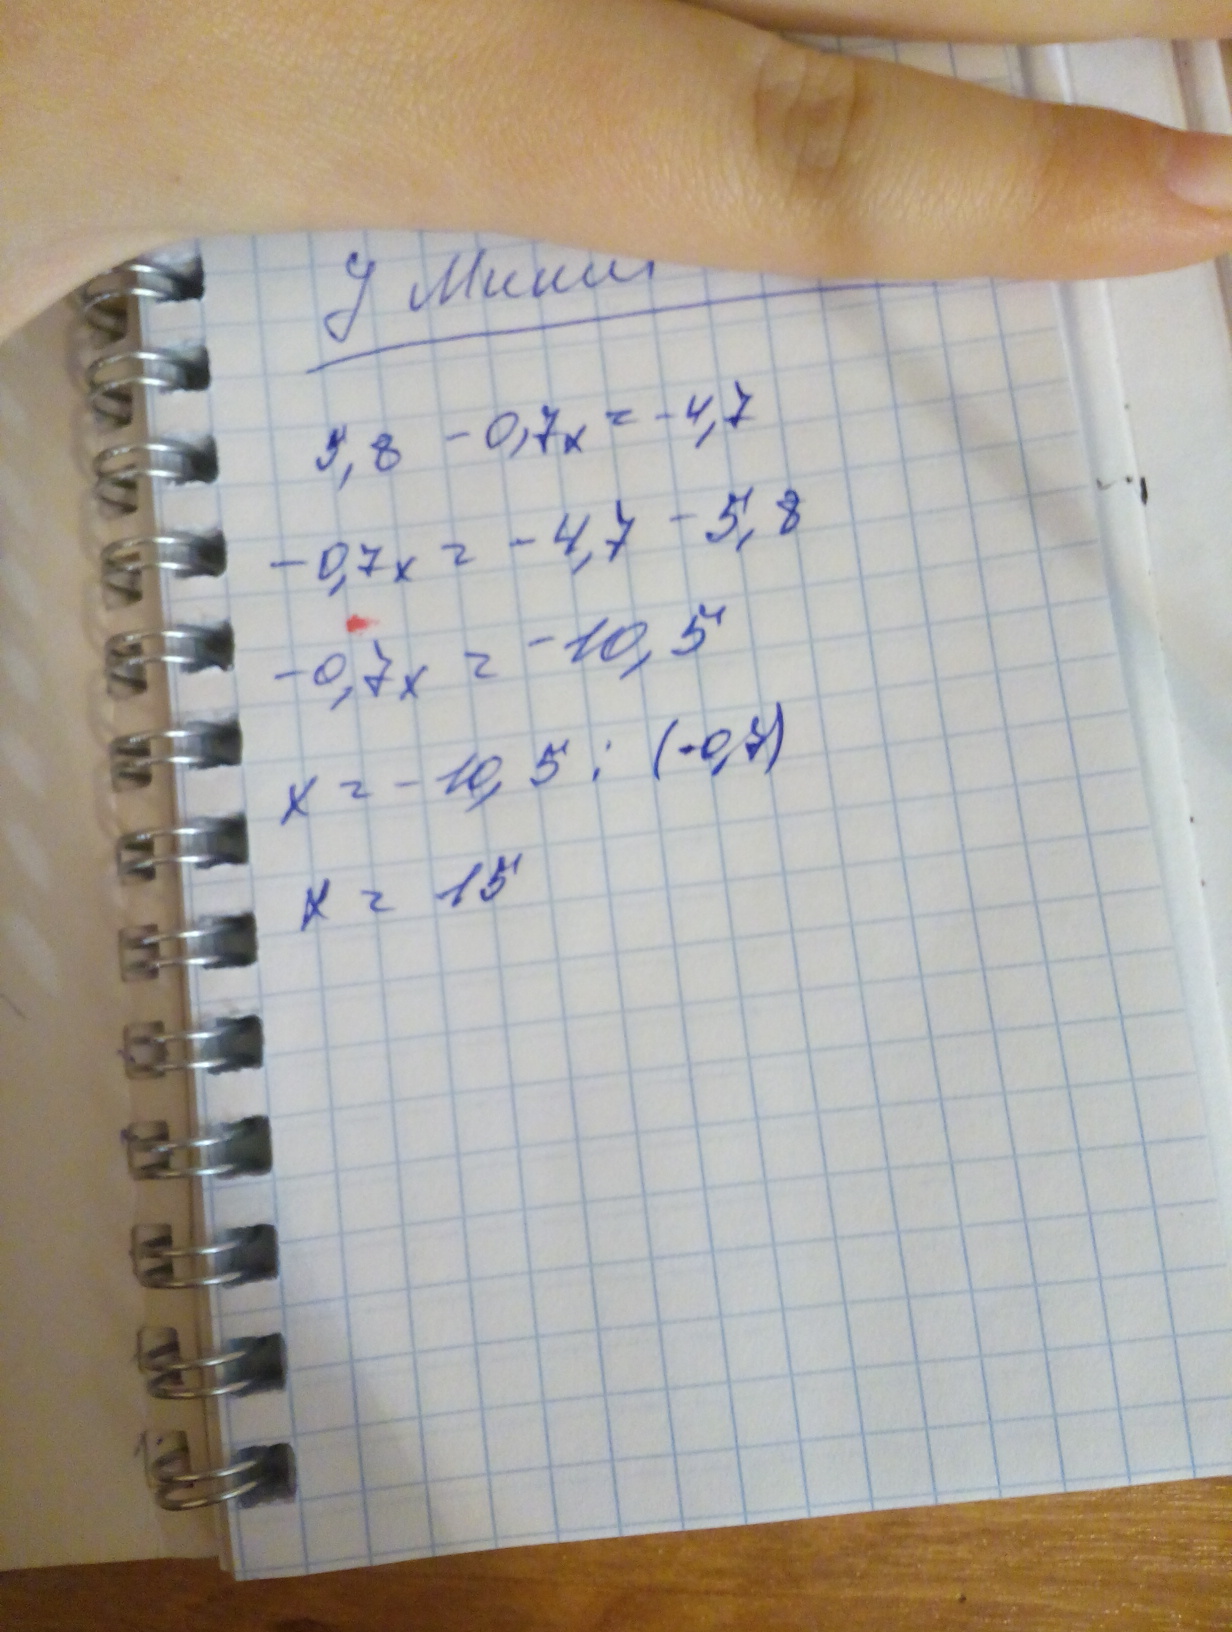 5,8 - 0,7x = -4,7
-0,7x = -4,7 - 5,8
-0,7x = -10,5
x = -10,5 : (-0,7)
x = 15